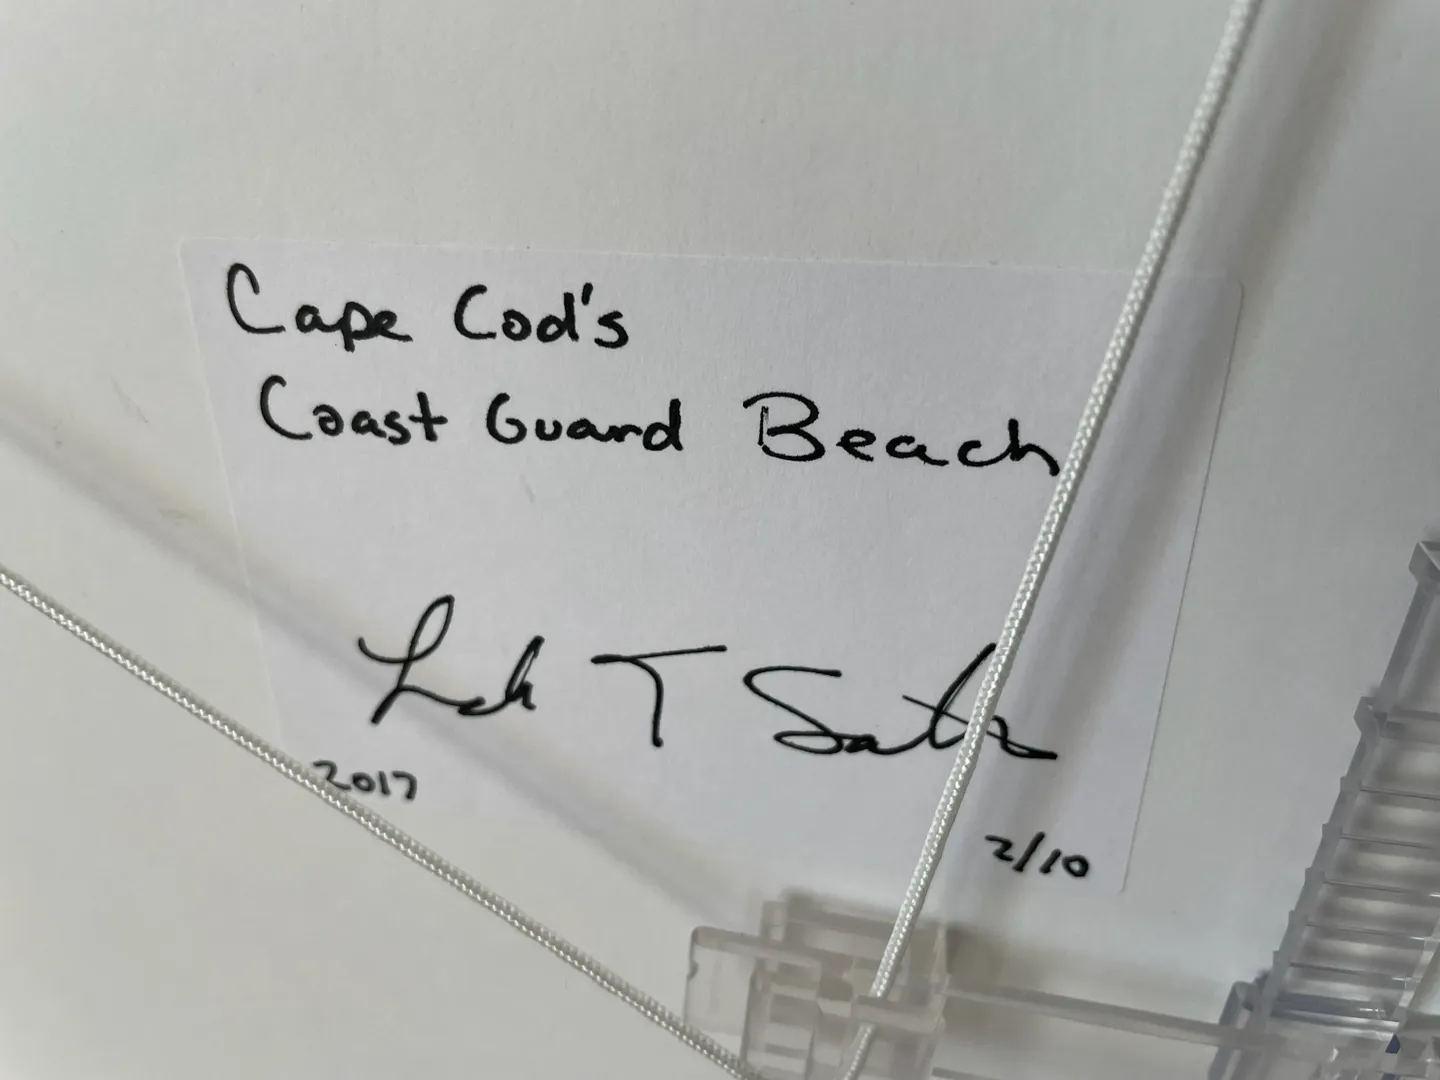 Cape Cod's
Coast Guard Beach
T
2017
2/10